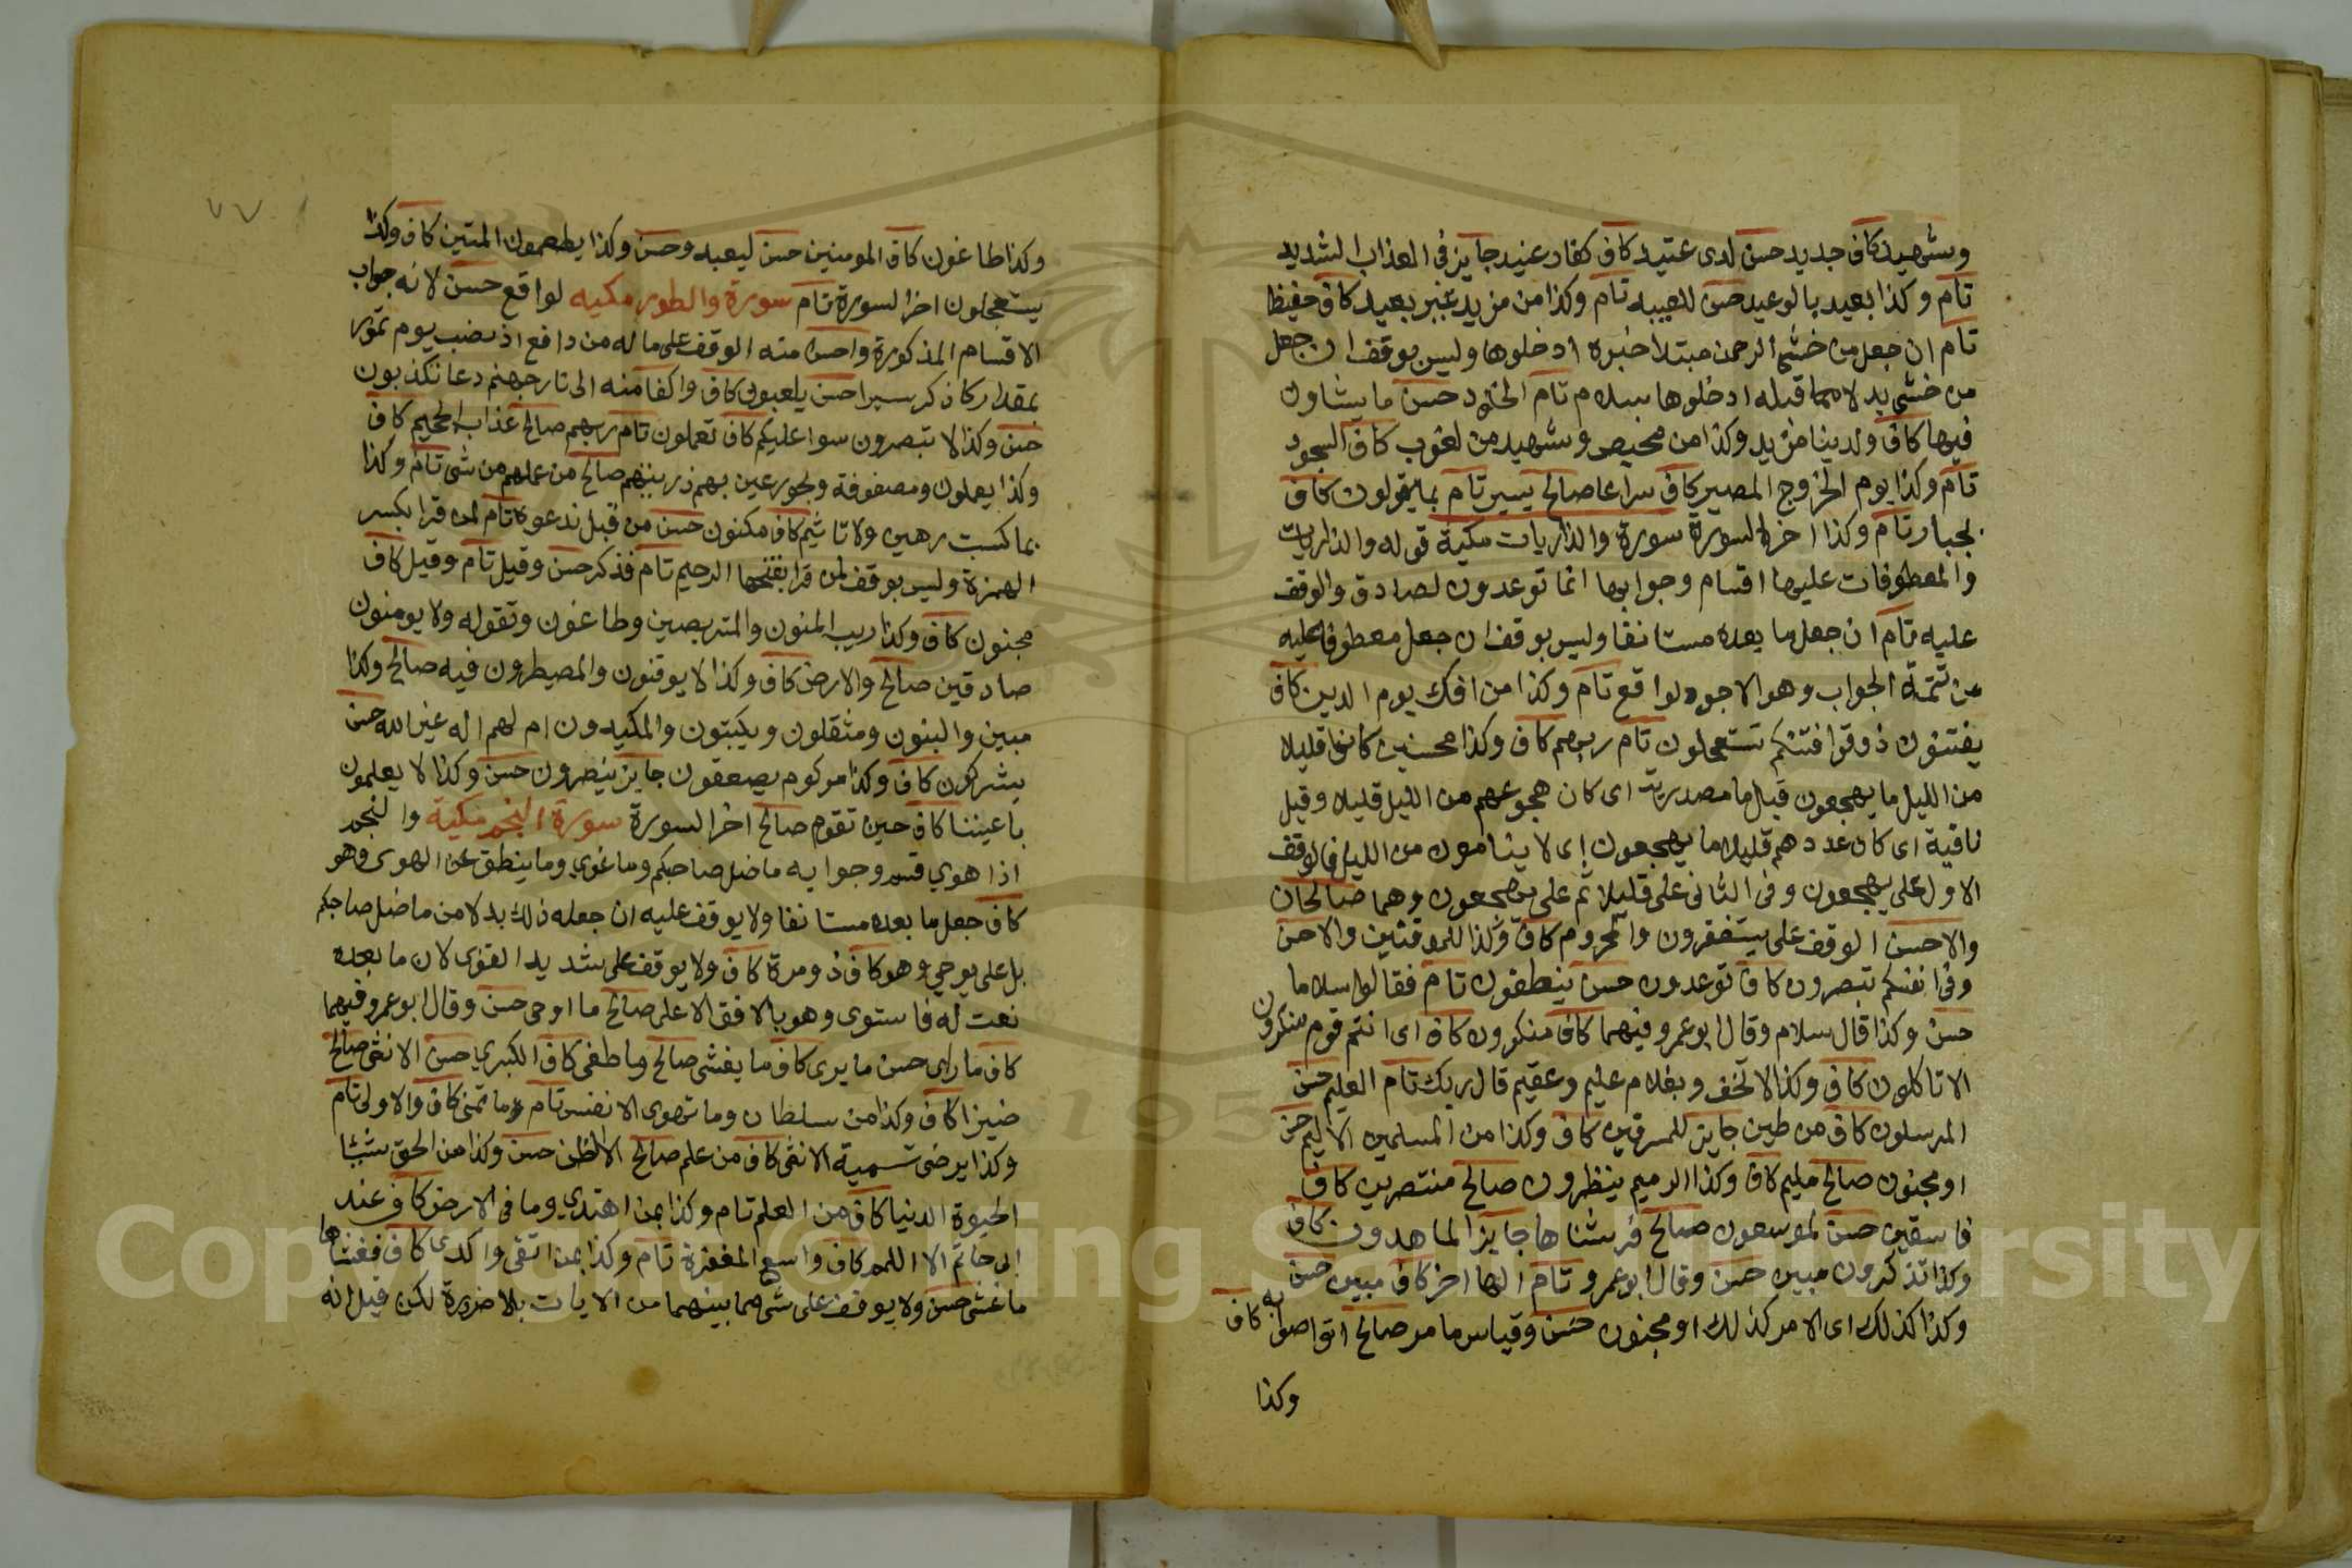 وشهيد كاف جديد حسن لدى عتيد كاف كفار عنيد جايز في العذاب الشديد
تام وكذا بعيد بالوعيد حسن للعبيد تام وكذا من مزيد غير بعيد كاف حفيظ
تام ان جعل من خشي الرحمن مبتدا خبره ادخلوها وليس بوقف ان جعل
من خشي بدلا مما قبله ادخلوها بسلام تام الخلود حسن ما يشاون
فيها كاف ولدينا مزيد وكذا من محيص وشهيد من لغوب كاف السجود
تام وكذا يوم الخروج المصير كاف سراعا صالح يسير تام بما يقولون كاف
بجبار تام وكذا اخر السورة سورة والذاريات مكية قوله والذاريات
والمعطوفات عليها اقسام وجوابها انما توعدون لصادق والوقف
عليه تام ان جعل ما بعده مستانفا وليس بوقف ان جعل معطوفا عليه
من تتمة الجواب وهو الاجود لواقع تام وكذا من افك يوم الدين كاف
يفتنون ذوقوا فتنتكم تستعجلون تام ربهم كاف وكذا محسنين كانوا قليلا
من الليل ما يهجعون قيل ما مصدرية اى كان هجوعهم من الليل قليلا وقيل
نافية اى كان عددهم قليلا ما يهجعون اى لا ينامون من الليل فالوقف
الاول على يهجعون وفى الثانى على قليلا ثم على يهجعون وهما صالحان
والاحسن الوقف على يستغفرون والمحروم كاف وكذا للموقنين والاحسن
وفى انفسكم تبصرون كاف توعدون حسن ينطقون تام فقالوا سلاما
حسن وكذا قال سلام وقال ابو عمرو فيهما كاف منكرون كاف اى انتم قوم منكرون
الا تاكلون كاف وكذا لا تخف وبغلام عليم وعقيم قال ربك تام العليم حسن
المرسلون كاف من طين جايز للمسرفين كاف وكذا من المسلمين الاليم حسن
او مجنون صالح مليم كاف وكذا الرميم ينظرون صالح منتصرين كاف
فاسقين حسن لموسعون صالح فرشناها جايز الماهدون كاف
وكذا تذكرون مبين حسن وقال ابو عمرو تام الها اخر كاف مبين حسن
وكذا كذلك اى الامر كذلك او مجنون حسن وقياس ما مر صالح اتواصوا به كاف
وكذا
وكذا طاغون كاف المومنين حسن ليعبدون حسن وكذا يطعمون المتين كاف وكذا
يستعجلون اخر السورة تام سورة والطور مكيه لواقع حسن لانه جواب
الاقسام المذكورة واحسن منه الوقف على ما له من دافع اذ نصب يوم تمور
بمقدار كاذكر سيرا حسن يلعبون كاف واكفا منه الى نار جهنم دعا تكذبون
حسن وكذا لا تبصرون سوا عليكم كاف تعملون تام ربهم صالح عذاب الجحيم كاف
وكذا يعملون ومصفوفة وبحور عين بهم ذريتهم صالح من عملهم من شى تام وكذا
بما كسب رهين ولا تاثيم كاف مكنون حسن من قبل ندعوه تام لمن قرا بكسر
الهمزة وليس بوقف لمن قرا بفتحها الرحيم تام فذكر حسن وقيل تام وقيل كاف
مجنون كاف وكذا ريب المنون والمتربصين وطاغون وتقوله ولا يومنون
صادقين صالح والارض كاف وكذا لا يوقنون والمصيطرون فيه صالح وكذا
مبين والبنون ومثقلون ويكتبون والمكيدون ام لهم اله غير الله حسن
يشركون كاف وكذا مركوم يصعقون جايز ينصرون حسن وكذا لا يعلمون
باعيننا كاف حين تقوم صالح اخر السورة سورة النجم مكية والنجم
اذا هوي قسم وجوابه ما ضل صاحبكم وما غوي وما ينطق عن الهوى وهو
كاف جعل ما بعده مستانفا ولا يوقف عليه ان جعله ذلك بدلا من ما ضل صاحبكم
بل على يوحي وهو كاف ذو مرة كاف ولا يوقف على شديد القوى لان ما بعده
نعت له فاستوى وهو بالافق الاعلى صالح ما اوحى حسن وقال ابو عمرو فيهما
كاف ما راى حسن ما يرى كاف ما يغشى صالح وما طغى كاف الكبري حسن الانثى صالح
ضيزا كاف وكذا من سلطان وما تهوى الانفس تام وما تمنى كاف والاولى تام
وكذا يرضى تسمية الانثى كاف من علم صالح الا الظن حسن وكذا من الحق شيئا
الحيوة الدنيا كاف من العلم تام وكذا بمن اهتدي وما فى الارض كاف عند
الا اللمم كاف واسع المغفرة تام وكذا بمن اتقى واكدى كاف فغشاها
ما غشى حسن ولا يوقف على شى مما بينهما من الايات بلا ضرورة لكن قيل انه
Copyright © King Saud University
195
٧٧